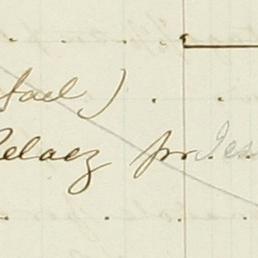 fael)
Pelaez pr. Jes